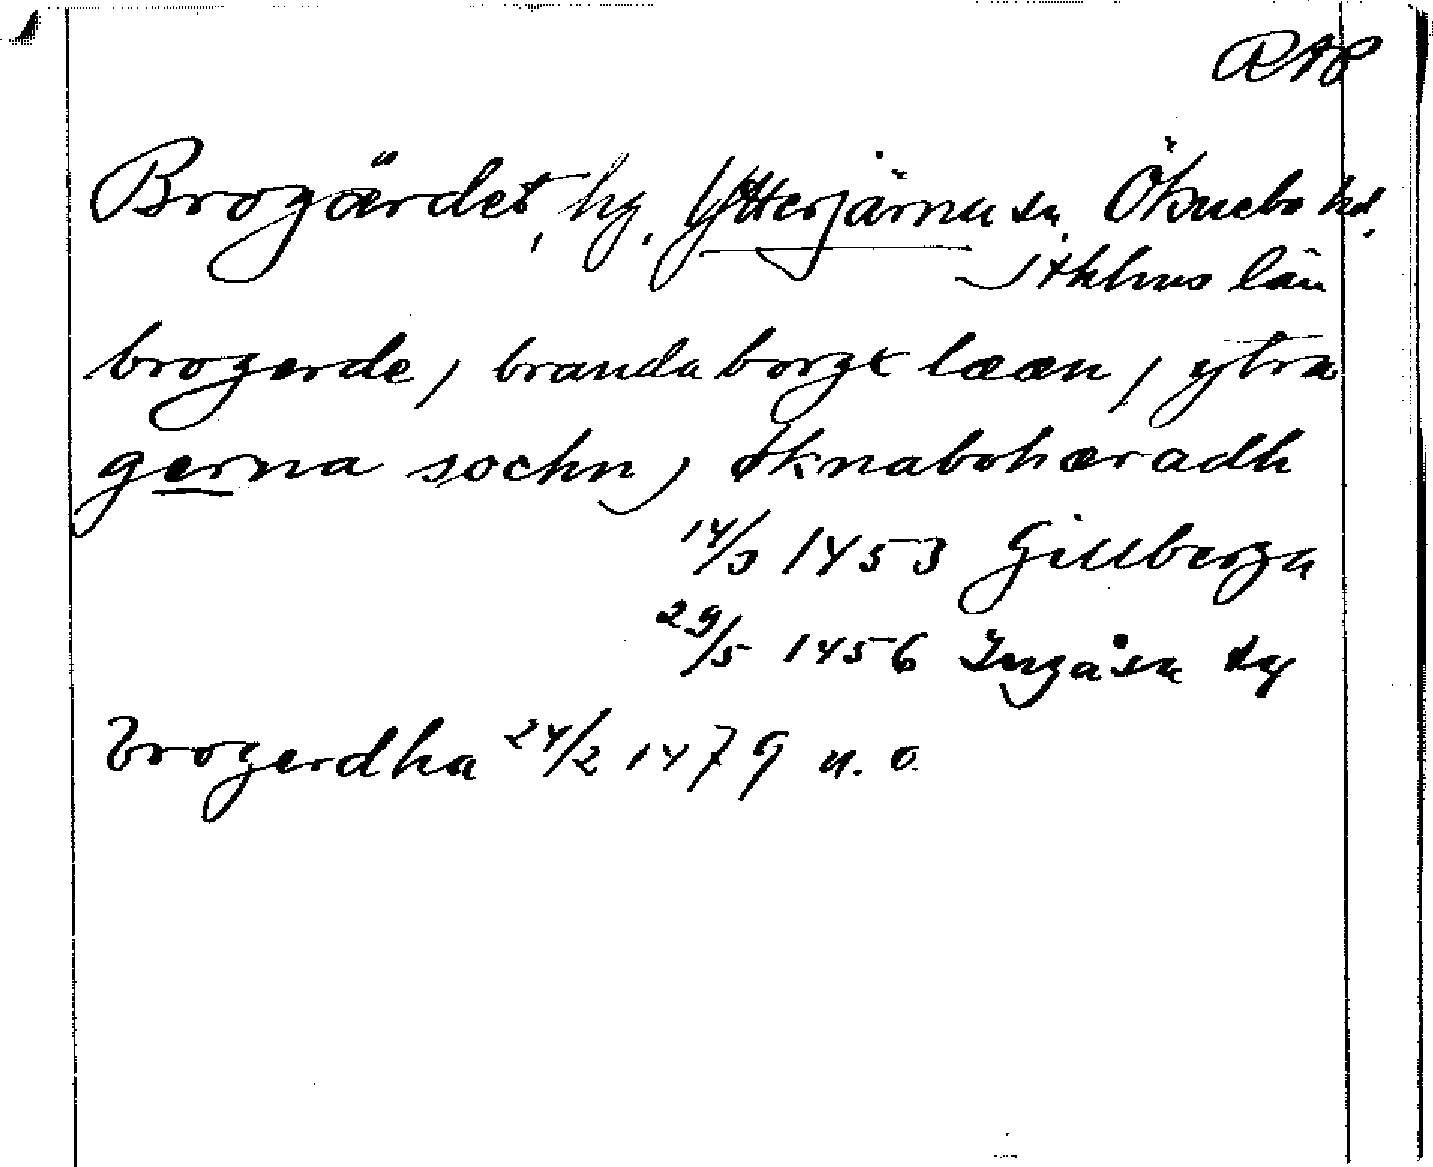 RAP
Brogärdet, hg. Ytterjärna sn. Öknebo hd.
Sthlms län
brogerde, branda borgx lææn, ytra
gerna sochn, øknabohæradh
14/3 1453 Gillberga
29/5 1456
brogerdha 24/2 1479 u. o.